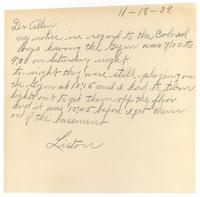 11-18-39
Dr Allen.
my notice in regard to the Colored
boys having the Gym was 7:00 to
9:00 on Saturday night
to-night they were still playing on
the Gym at 10:15 and I had to turn
light out to get them off the floor
and it was 10:45 before I got them
out of the basement
Liston